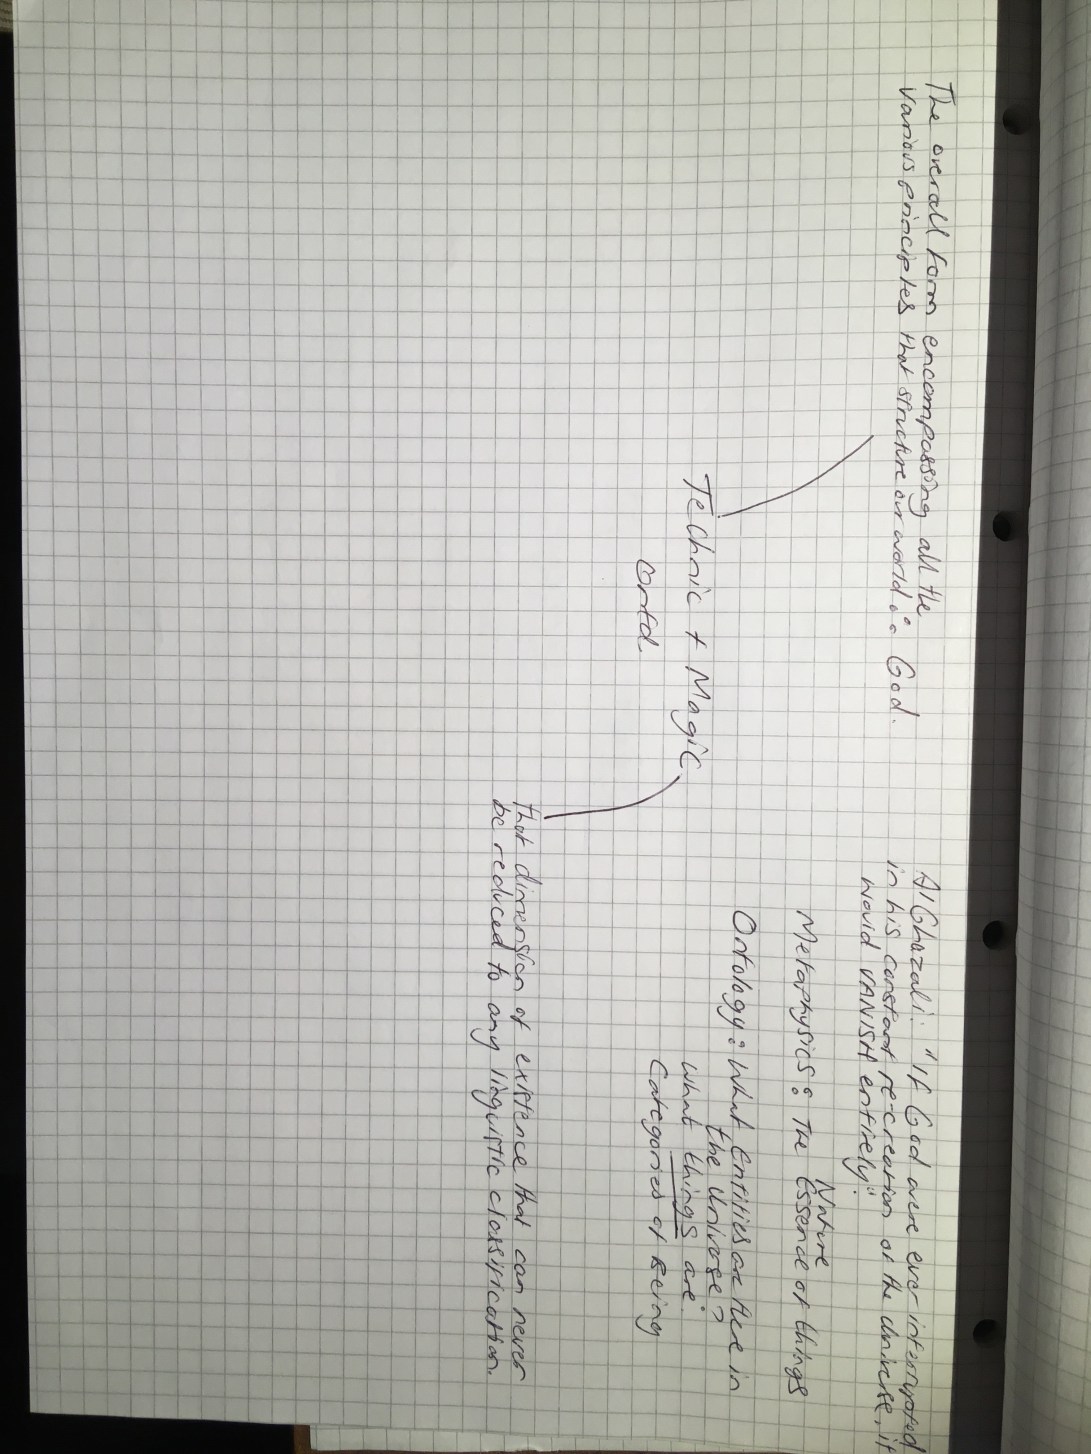 The overall form encompassing all the
various principles that structure our world is: God.
Technic + Magic
contd.
Al Ghazali: "If God were ever interrupted
in his constant re-creation of the universe, it
would VANISH entirely".
Nature
Metaphysics: The Essence of things
Ontology: What Entities are there in
the Universe?
What things are.
Categories of Being
that dimension of existence that can never
be reduced to any linguistic classification.